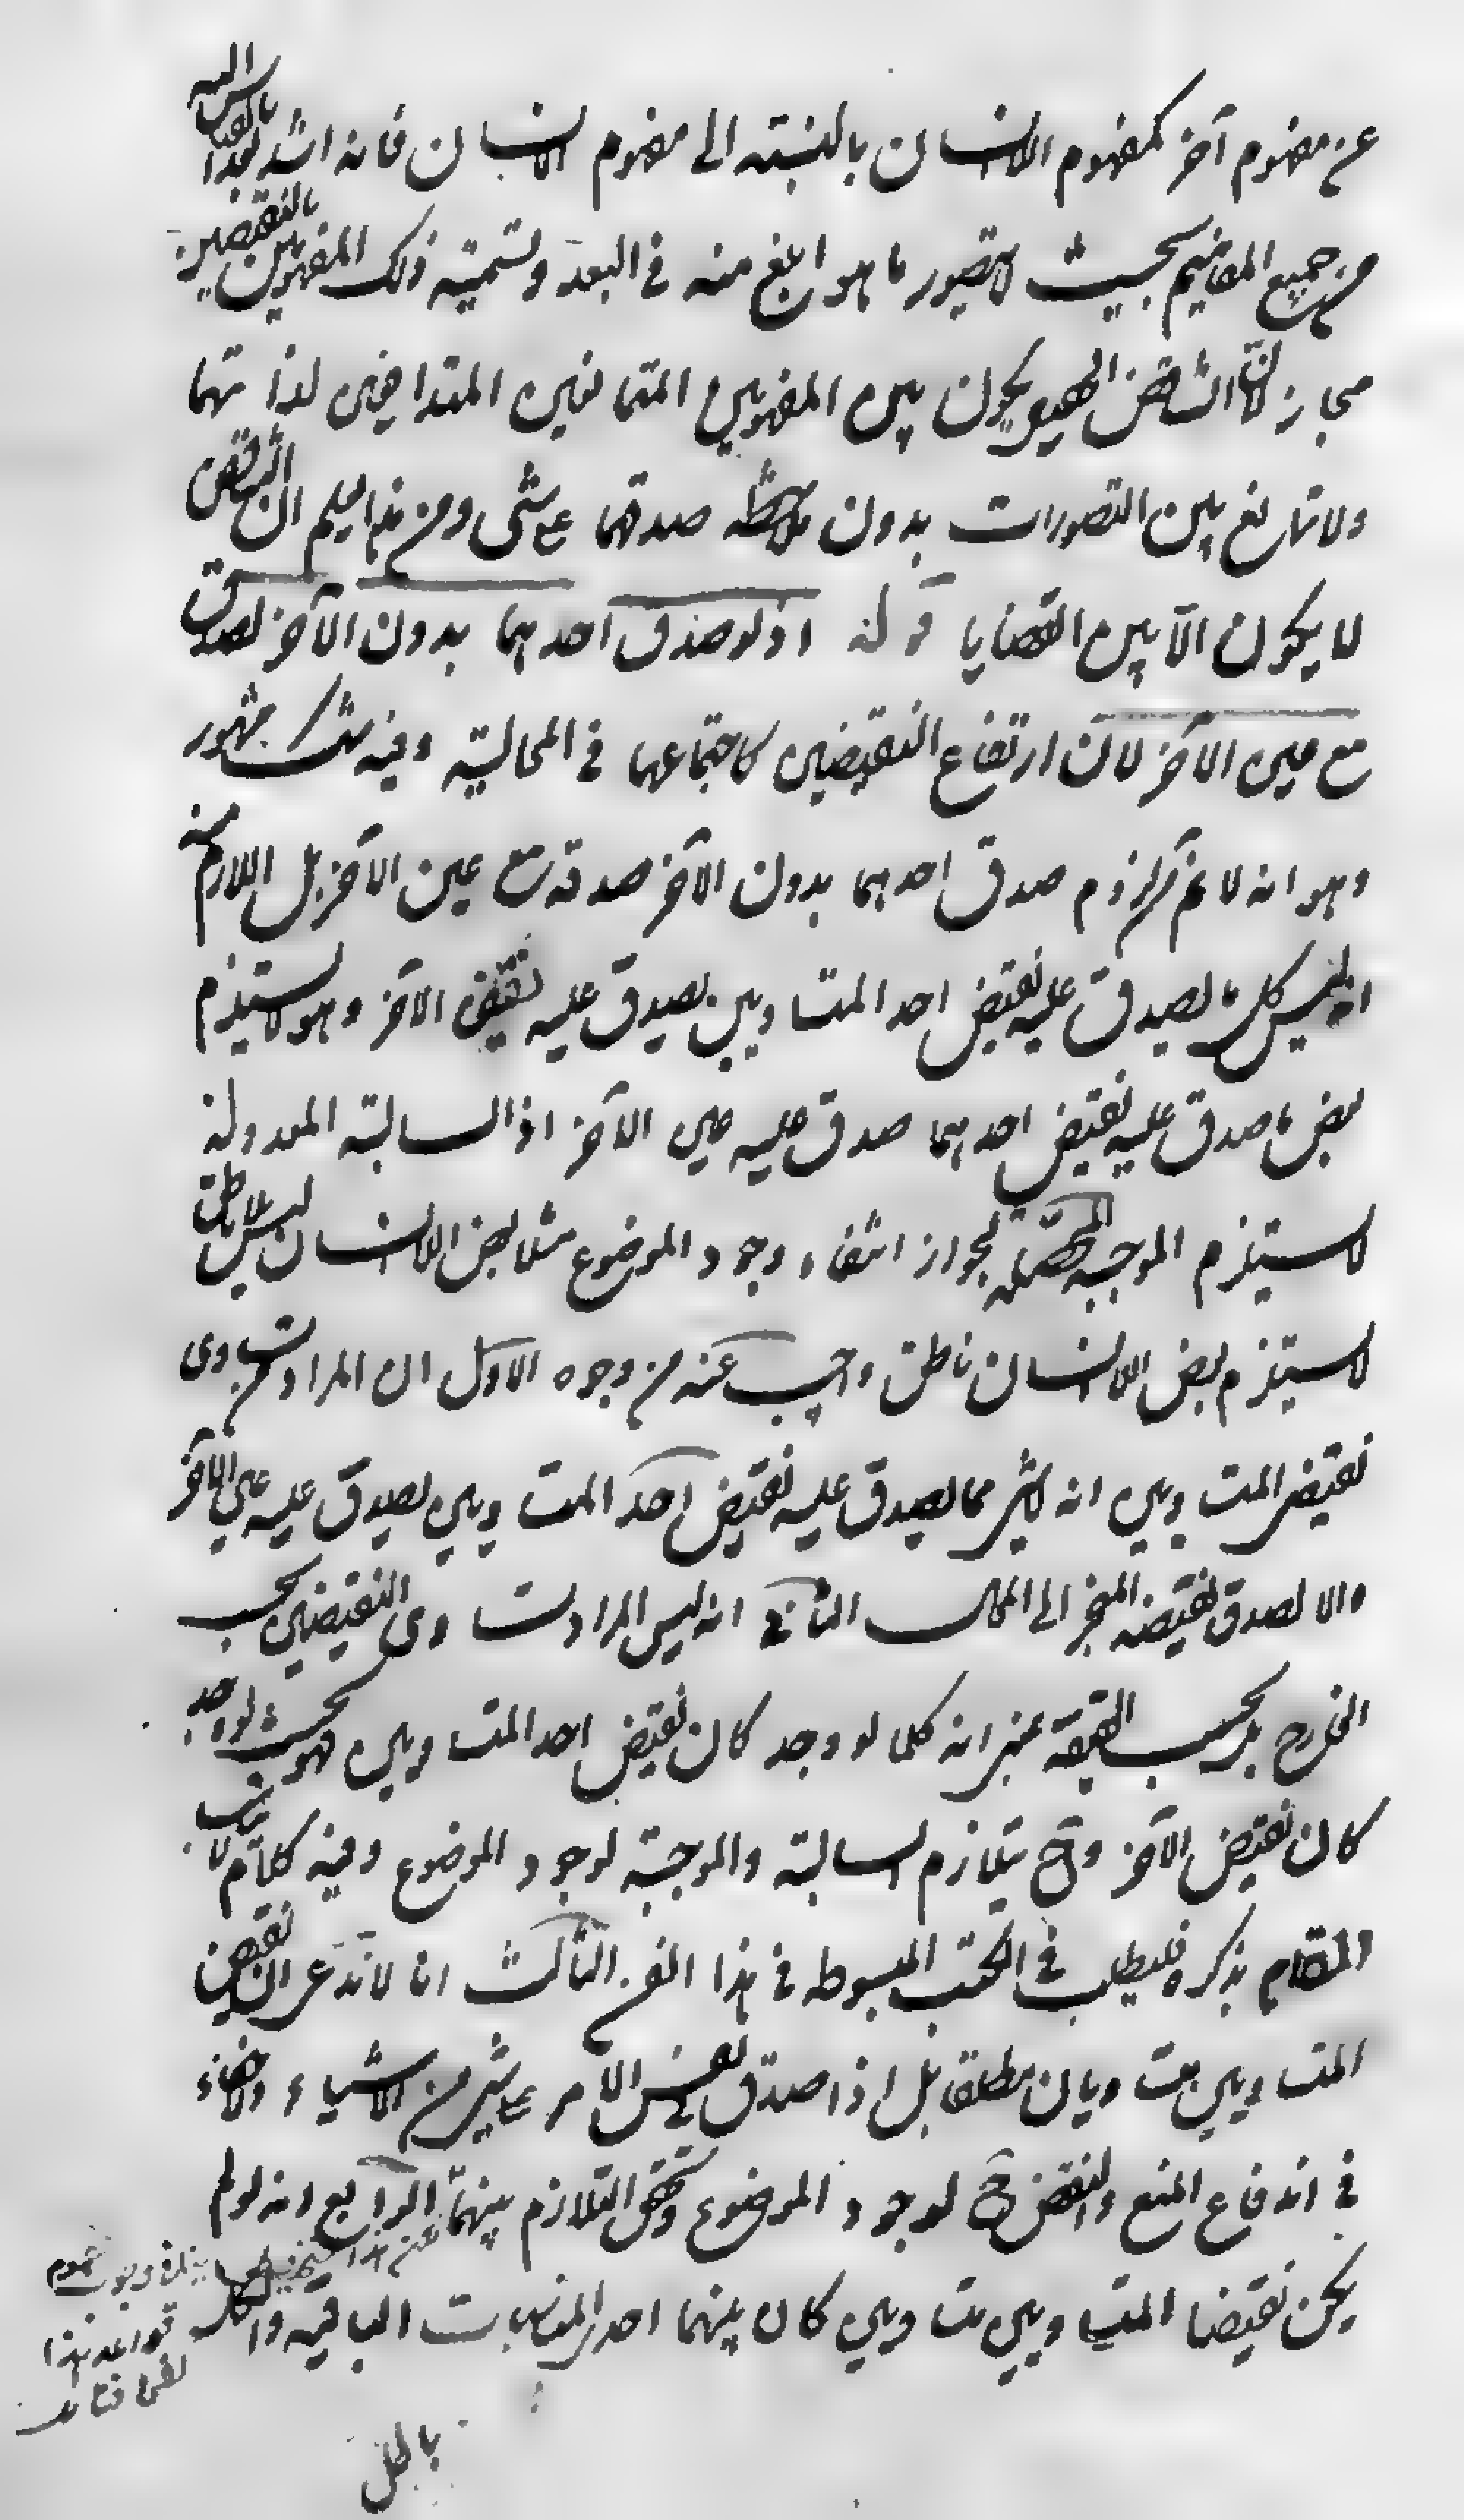 عن مفهوم آخر كمفهوم الانسان بالنسبته الى مفهوم اللاانسان فانه اشد بعدا بالقياس اليه
من جميع المفاهيم بحيث لا يتصور ما هو ابلغ منه فى البعد وتسميته ذلك المفهومين بالنقيضين
مجاز لان التناقض الحقيقى يكون بين المفهومين المتمانعين المتدافعين لذاتهما
ولا تمانع بين التصورات بدون ملاحظه صدقهما على شى ومن هذا يعلم ان التناقض
لا يكون الا بين القضايا قوله اذ لو صدق احدهما بدون الآخر لصدق
مع عين الآخر لان ارتفاع النقيضين كاجتماعهما فى المحالية وفيه شك مشهور
وهو انه لا نم لزوم صدق احدهما بدون الآخر صدقه مع عين الآخر بل اللازم منه
انه ليس كل ما يصدق عليه نقيض احد المتساويين يصدق عليه نقيض الآخر وهو لا يستلزم
بعض ما صدق عليه نقيض احدهما صدق عليه عين الآخر اذ السالبة المعدولة
لا يستلزم الموجبه المحصلة لجواز انتفاء وجود الموضوع مثلا بعض اللاانسان ليس بلاناطق
لا يستلزم بعض اللاانسان ناطق واجيب عنه من وجوه الاول ان المراد من تساوى
نقيضى المتساويين انه لا شى مما يصدق عليه نقيض احد المتساويين يصدق عليه عين الآخر
والا لصدق نقيضه المنجر الى المحال الثانى انه ليس المراد تساوى النقيضين بحسب
الخارج بل بحسب الحقيقة بمعنى انه كلما لو وجد كان نقيض احد المتساويين فهو بحيث لو وجد
كان نقيض الآخر وح يتلازم السالبة والموجبة لوجود الموضوع وفيه كلام لا يناسب
المقام بذكره فليطلب فى الكتب المبسوطه فى هذا الفن الثالث انا لا ندعى ان نقيضى
المتساويين متساويان مطلقا بل اذا صدق فى نفس الامر على شى من الاشياء ولا خفاء
فى اندفاع المنع والنقض ح لوجود الموضوع وتحقق التلازم بينهما الرابع انه لو لم
يكن نقيضا المتساويين متساويين كان بينهما احدى المناسبات الباقيه والكل
قواعد هذا
باطل